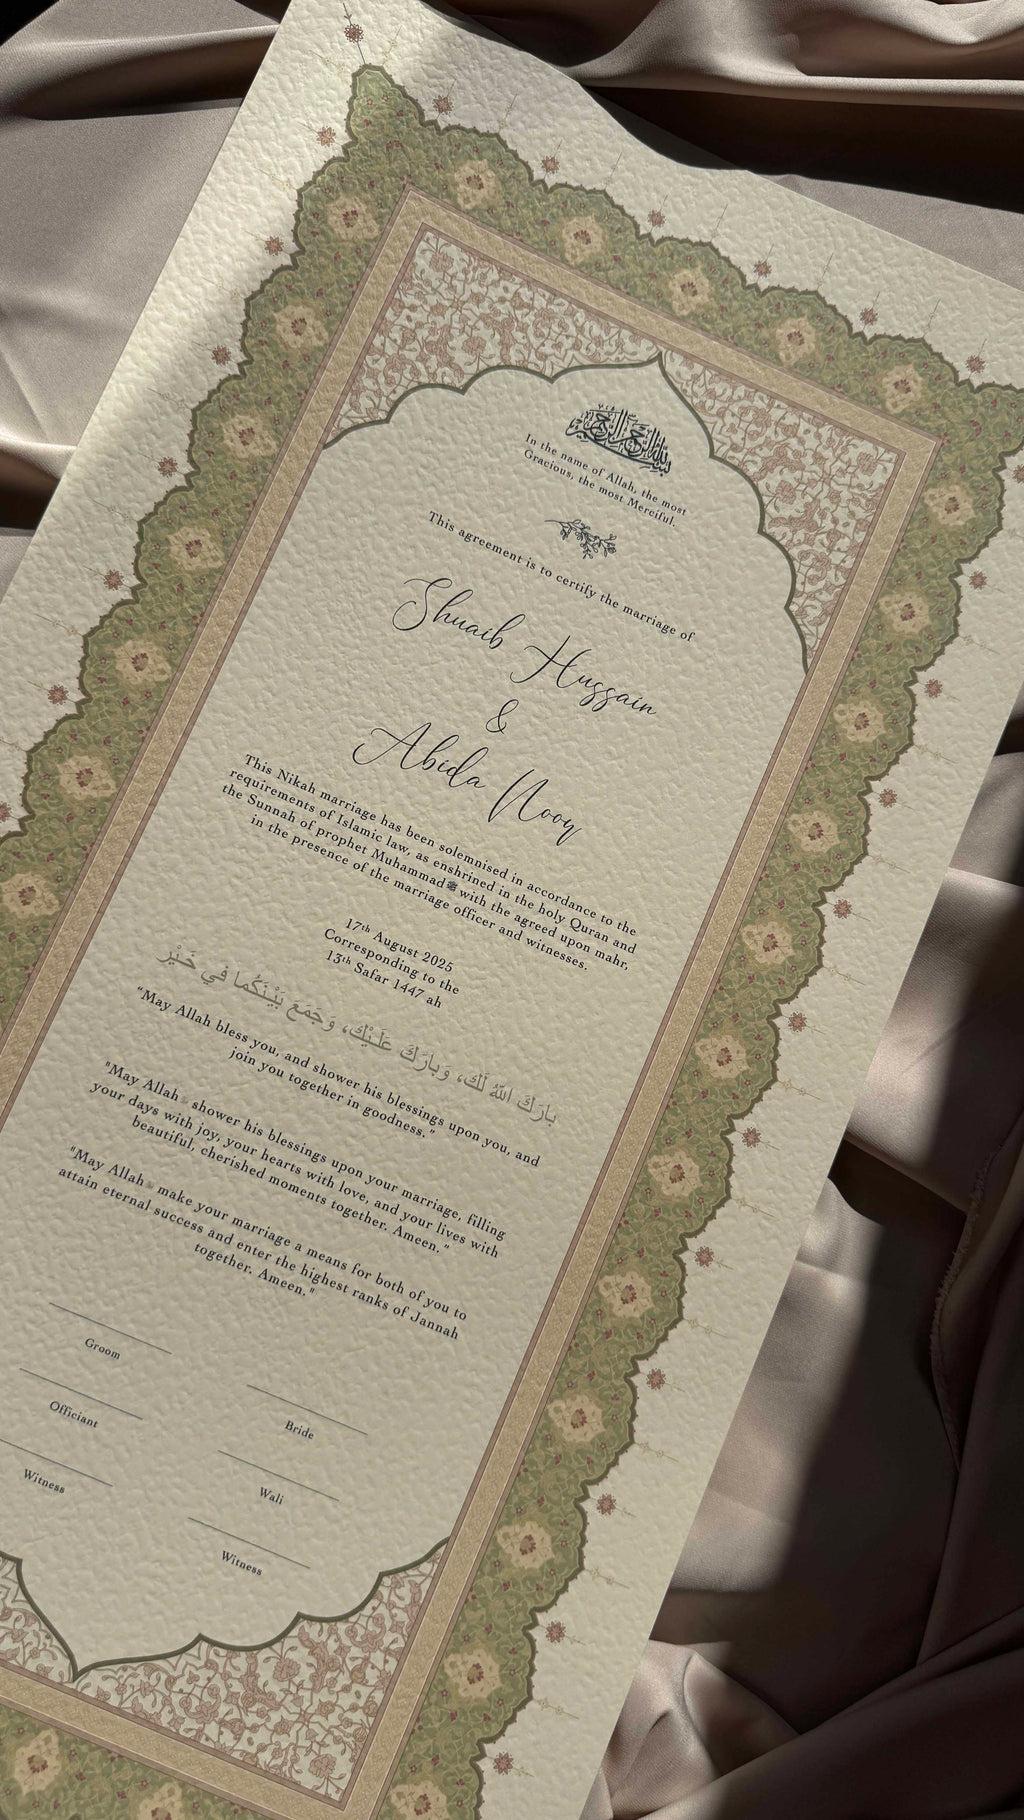 بسم الله الرحمن الرحيم
In the name of Allah, the most
Gracious, the most Merciful.
This agreement is to certify the marriage of
Shuaib Hussain
&
Abida
This Nikah marriage has been solemnised in accordance to the
requirements of Islamic law, as enshrined in the holy Quran and
the Sunnah of prophet Muhammadﷺ with the agreed upon mahr,
in the presence of the marriage officer and witnesses.
17th August 2025
Corresponding to the
13th Safar 1447 ah
بارَكَ اللهُ لَك، وَبارَكَ عَلَـيْك، وَجَمَعَ بَيْـنَكُما في خَـيْر
"May Allah bless you, and shower his blessings upon you, and
join you together in goodness."
"May Allah shower his blessings upon your marriage, filling
your days with joy, your hearts with love, and your lives with
beautiful, cherished moments together. Ameen."
"May Allah make your marriage a means for both of you to
attain eternal success and enter the highest ranks of Jannah
together. Ameen."
Groom
Bride
Officiant
Wali
Witness
Witness